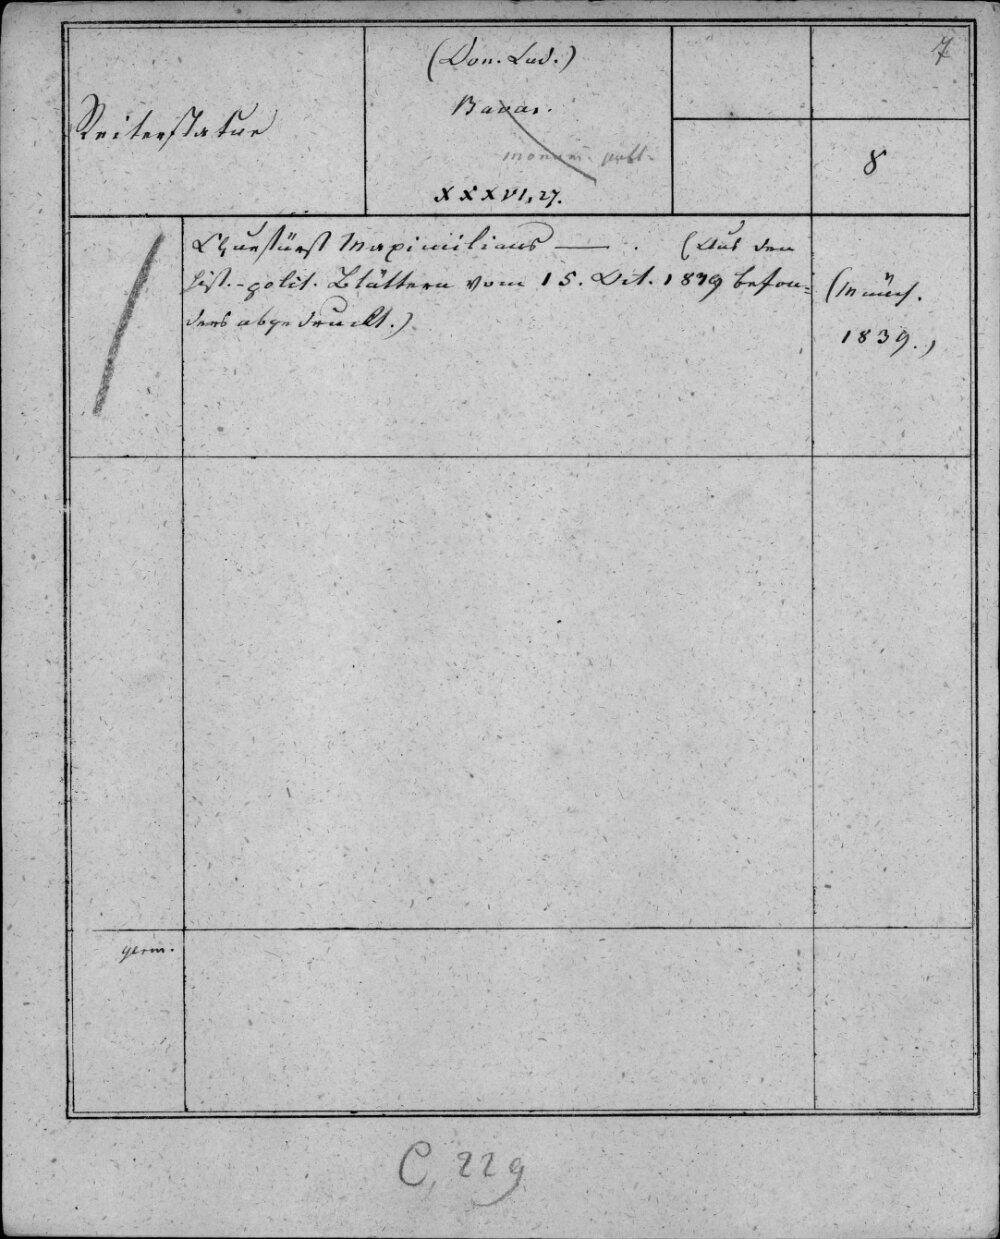 7
(Don. Lud.)
Reiterstatue
Bavar.
monum. publ.
8
XXXVI, 27.
Churfürst Maximilians —— . (Aus den
hist.-polit. Blättern vom 15. Oct. 1839 beson=
ders abgedruckt.)
(Münch.
1839.)
germ.
C, 229